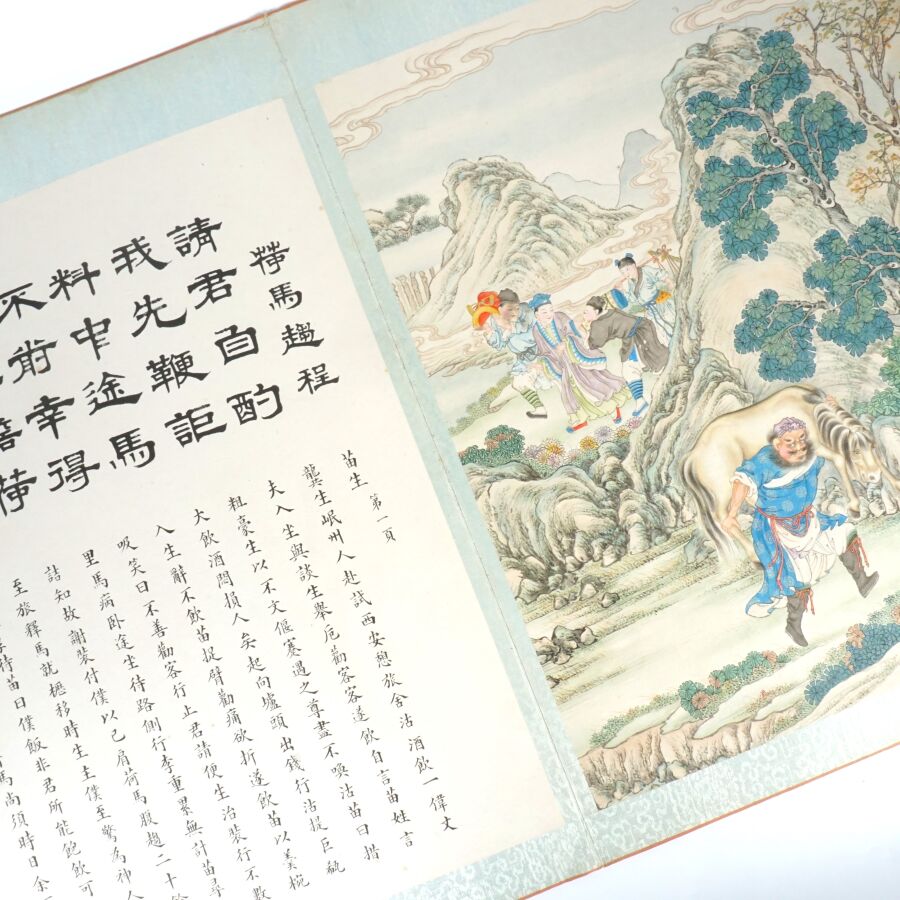 荷馬趨程
請君自酌
我先鞭詎
料中途馬
不前幸得
荷
苗生 第一頁
龔生岷州人赴試西安憩旅舍沽酒飲一偉丈
夫入坐與談生舉卮勸客客遂飲自言苗姓言
粗豪生以不文偃蹇遇之尊盡不喚沽苗曰措
大飲酒悶損人矣起向壚頭出錢行沽提巨瓻
入生辭不飲苗捉臂勸痛欲折遂飲苗以羹椀
吸笑曰不善勸客行止君請便生治裝行不數
里馬病臥途生待路側行李重累無計苗尋
詰知故謝裝付僕以己肩荷馬腹趨二十餘
至旅釋馬就櫪移時生主僕至驚為神人
待苗曰僕飯非君所能飽飲可
馬尚須時日余